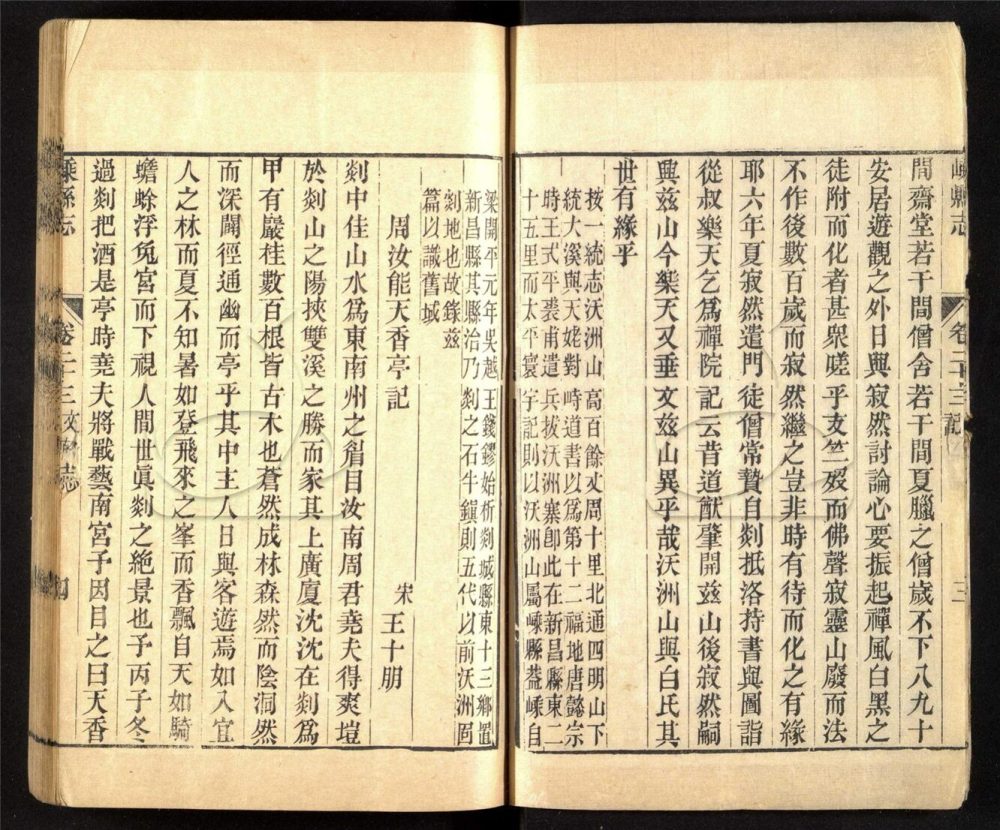 嵊縣志
卷二十三
記
三
間齋堂若干間僧舍若干間夏臘之僧歲不下八九十
安居遊觀之外日與寂然討論心要振起禪風白黑之
徒附而化者甚衆嗟乎支竺歿而佛聲寂靈山廢而法
不作後數百歲而寂然繼之豈非時有待而化之有緣
耶六年夏寂然遣門徒僧常贄自剡抵洛持書與圖詣
從叔樂天乞爲禪院記云昔道猷肇開茲山後寂然嗣
興茲山今樂天又垂文茲山異乎哉沃洲山與白氏其
世有緣乎
按一統志沃洲山高百餘丈周十里北通四明山下
統大溪與天姥對峙道書以爲第十二福地唐懿宗
時王式平裘甫遣兵拔沃洲寨即此在新昌縣東二
十五里而太平寰宇記則以沃洲山屬嵊縣蓋嵊自
梁開平元年吳越王錢鏐始析剡城縣東十三鄉置
新昌縣其縣治乃剡之石牛鎮則五代以前沃洲固
剡地也故錄茲
篇以識舊域
周汝能天香亭記
宋 王十朋
剡中佳山水爲東南州之眉目汝南周君堯夫得爽塏
於剡山之陽挾雙溪之勝而家其上廣廈沈沈在剡爲
甲有巖桂數百根皆古木也蒼然成林森然而陰洞然
而深闢徑通幽而亭乎其中主人日與客遊焉如入宜
人之林而夏不知暑如登飛來之峯而香飄自天如騎
蟾蜍浮兔宮而下視人間世眞剡之絕景也予丙子冬
過剡把酒是亭時堯夫將戰藝南宮予因目之曰天香
嵊縣志
卷二十三
文
志
四